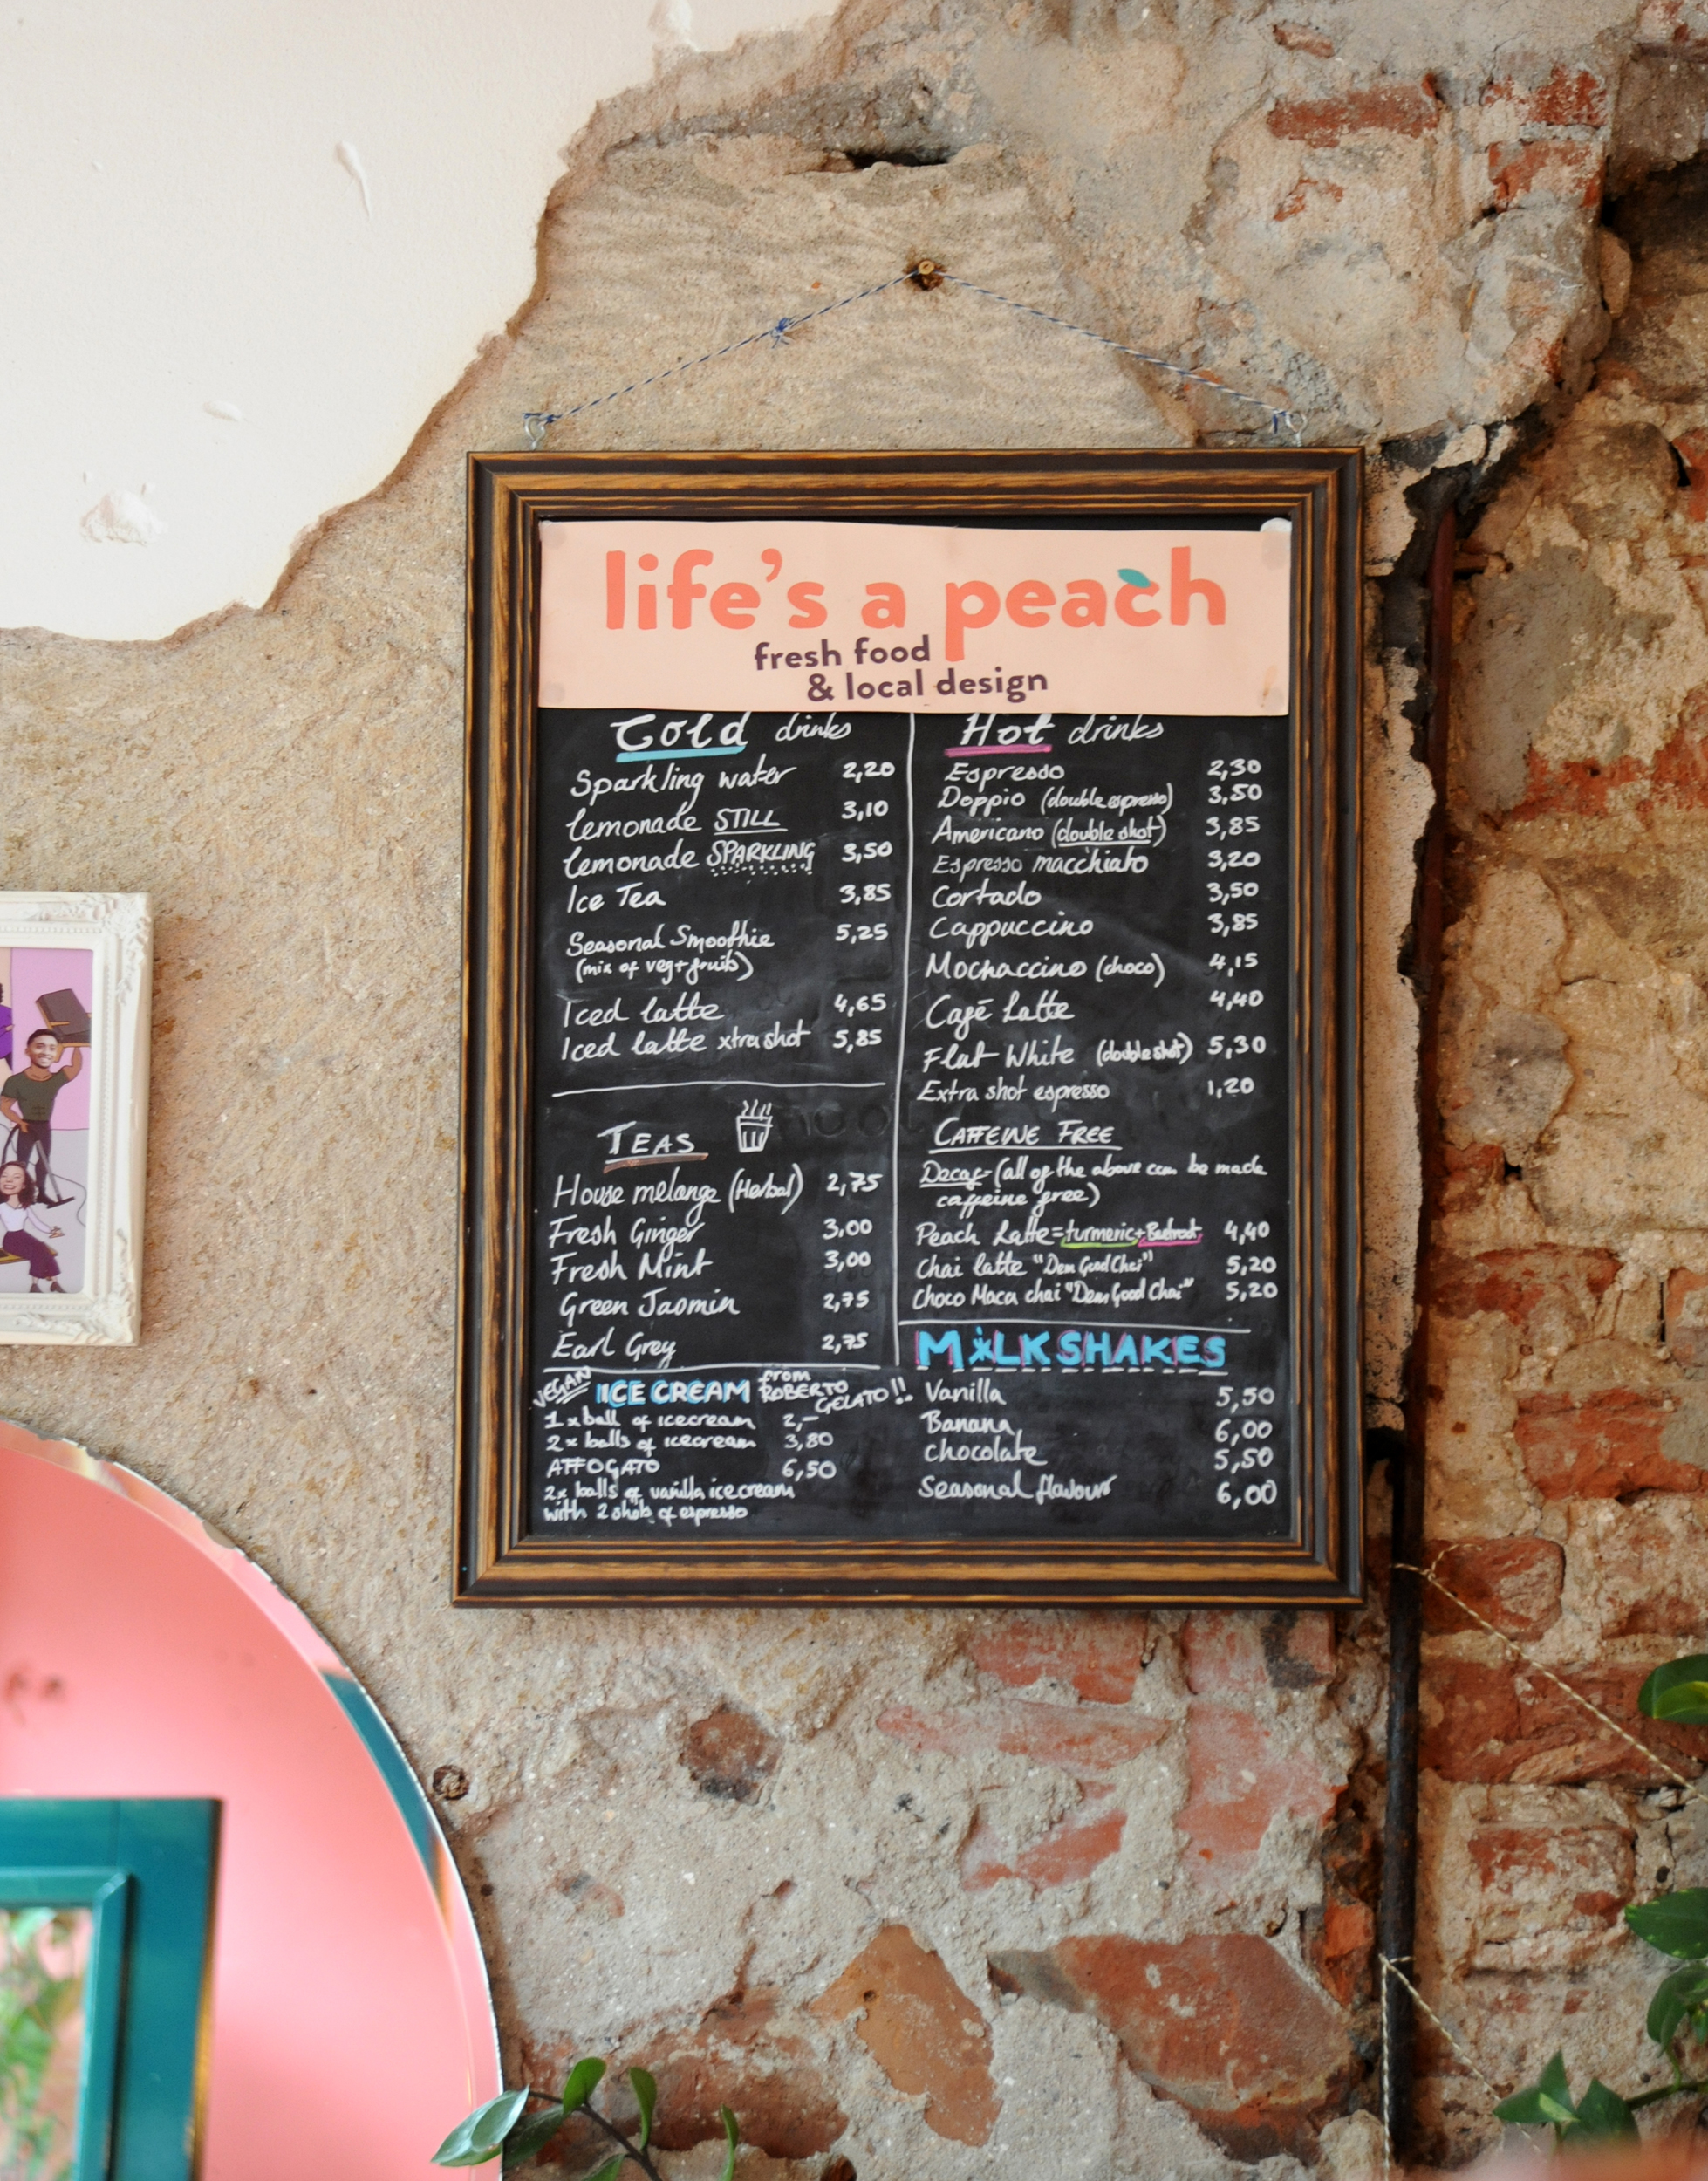 life's a peach
fresh food
& local design
Cold drinks
Sparkling water 2,20
lemonade STILL 3,10
lemonade SPARKLING 3,50
Ice Tea 3,85
Seasonal Smoothie 5,25
(mix of veg+fruits)
Iced latte 4,65
Iced latte xtra shot 5,85
TEAS
House melange (Herbal) 2,75
Fresh Ginger 3,00
Fresh Mint 3,00
Green Jasmin 2,75
Earl Grey 2,75
VEGAN ICE CREAM from ROBERTO GELATO!!
1 x ball of icecream 2,-
2 x balls of icecream 3,80
AFFOGATO 6,50
2x balls of vanilla icecream
with 2 shots of espresso
Hot drinks
Espresso 2,30
Doppio (double espresso) 3,50
Americano (double shot) 3,85
Espresso macchiato 3,20
Cortado 3,50
Cappuccino 3,85
Mochaccino (choco) 4,15
Café Latte 4,40
Flat White (double shot) 5,30
Extra shot espresso 1,20
CAFFEINE FREE
Decaf - (all of the above can be made
caffeine free)
Peach Latte = turmeric + Beetroot 4,40
Chai latte "Dem Good Chai" 5,20
Choco Maca chai "Dem Good Chai" 5,20
MiLKSHAKES
Vanilla 5,50
Banana 6,00
chocolate 5,50
Seasonal flavour 6,00